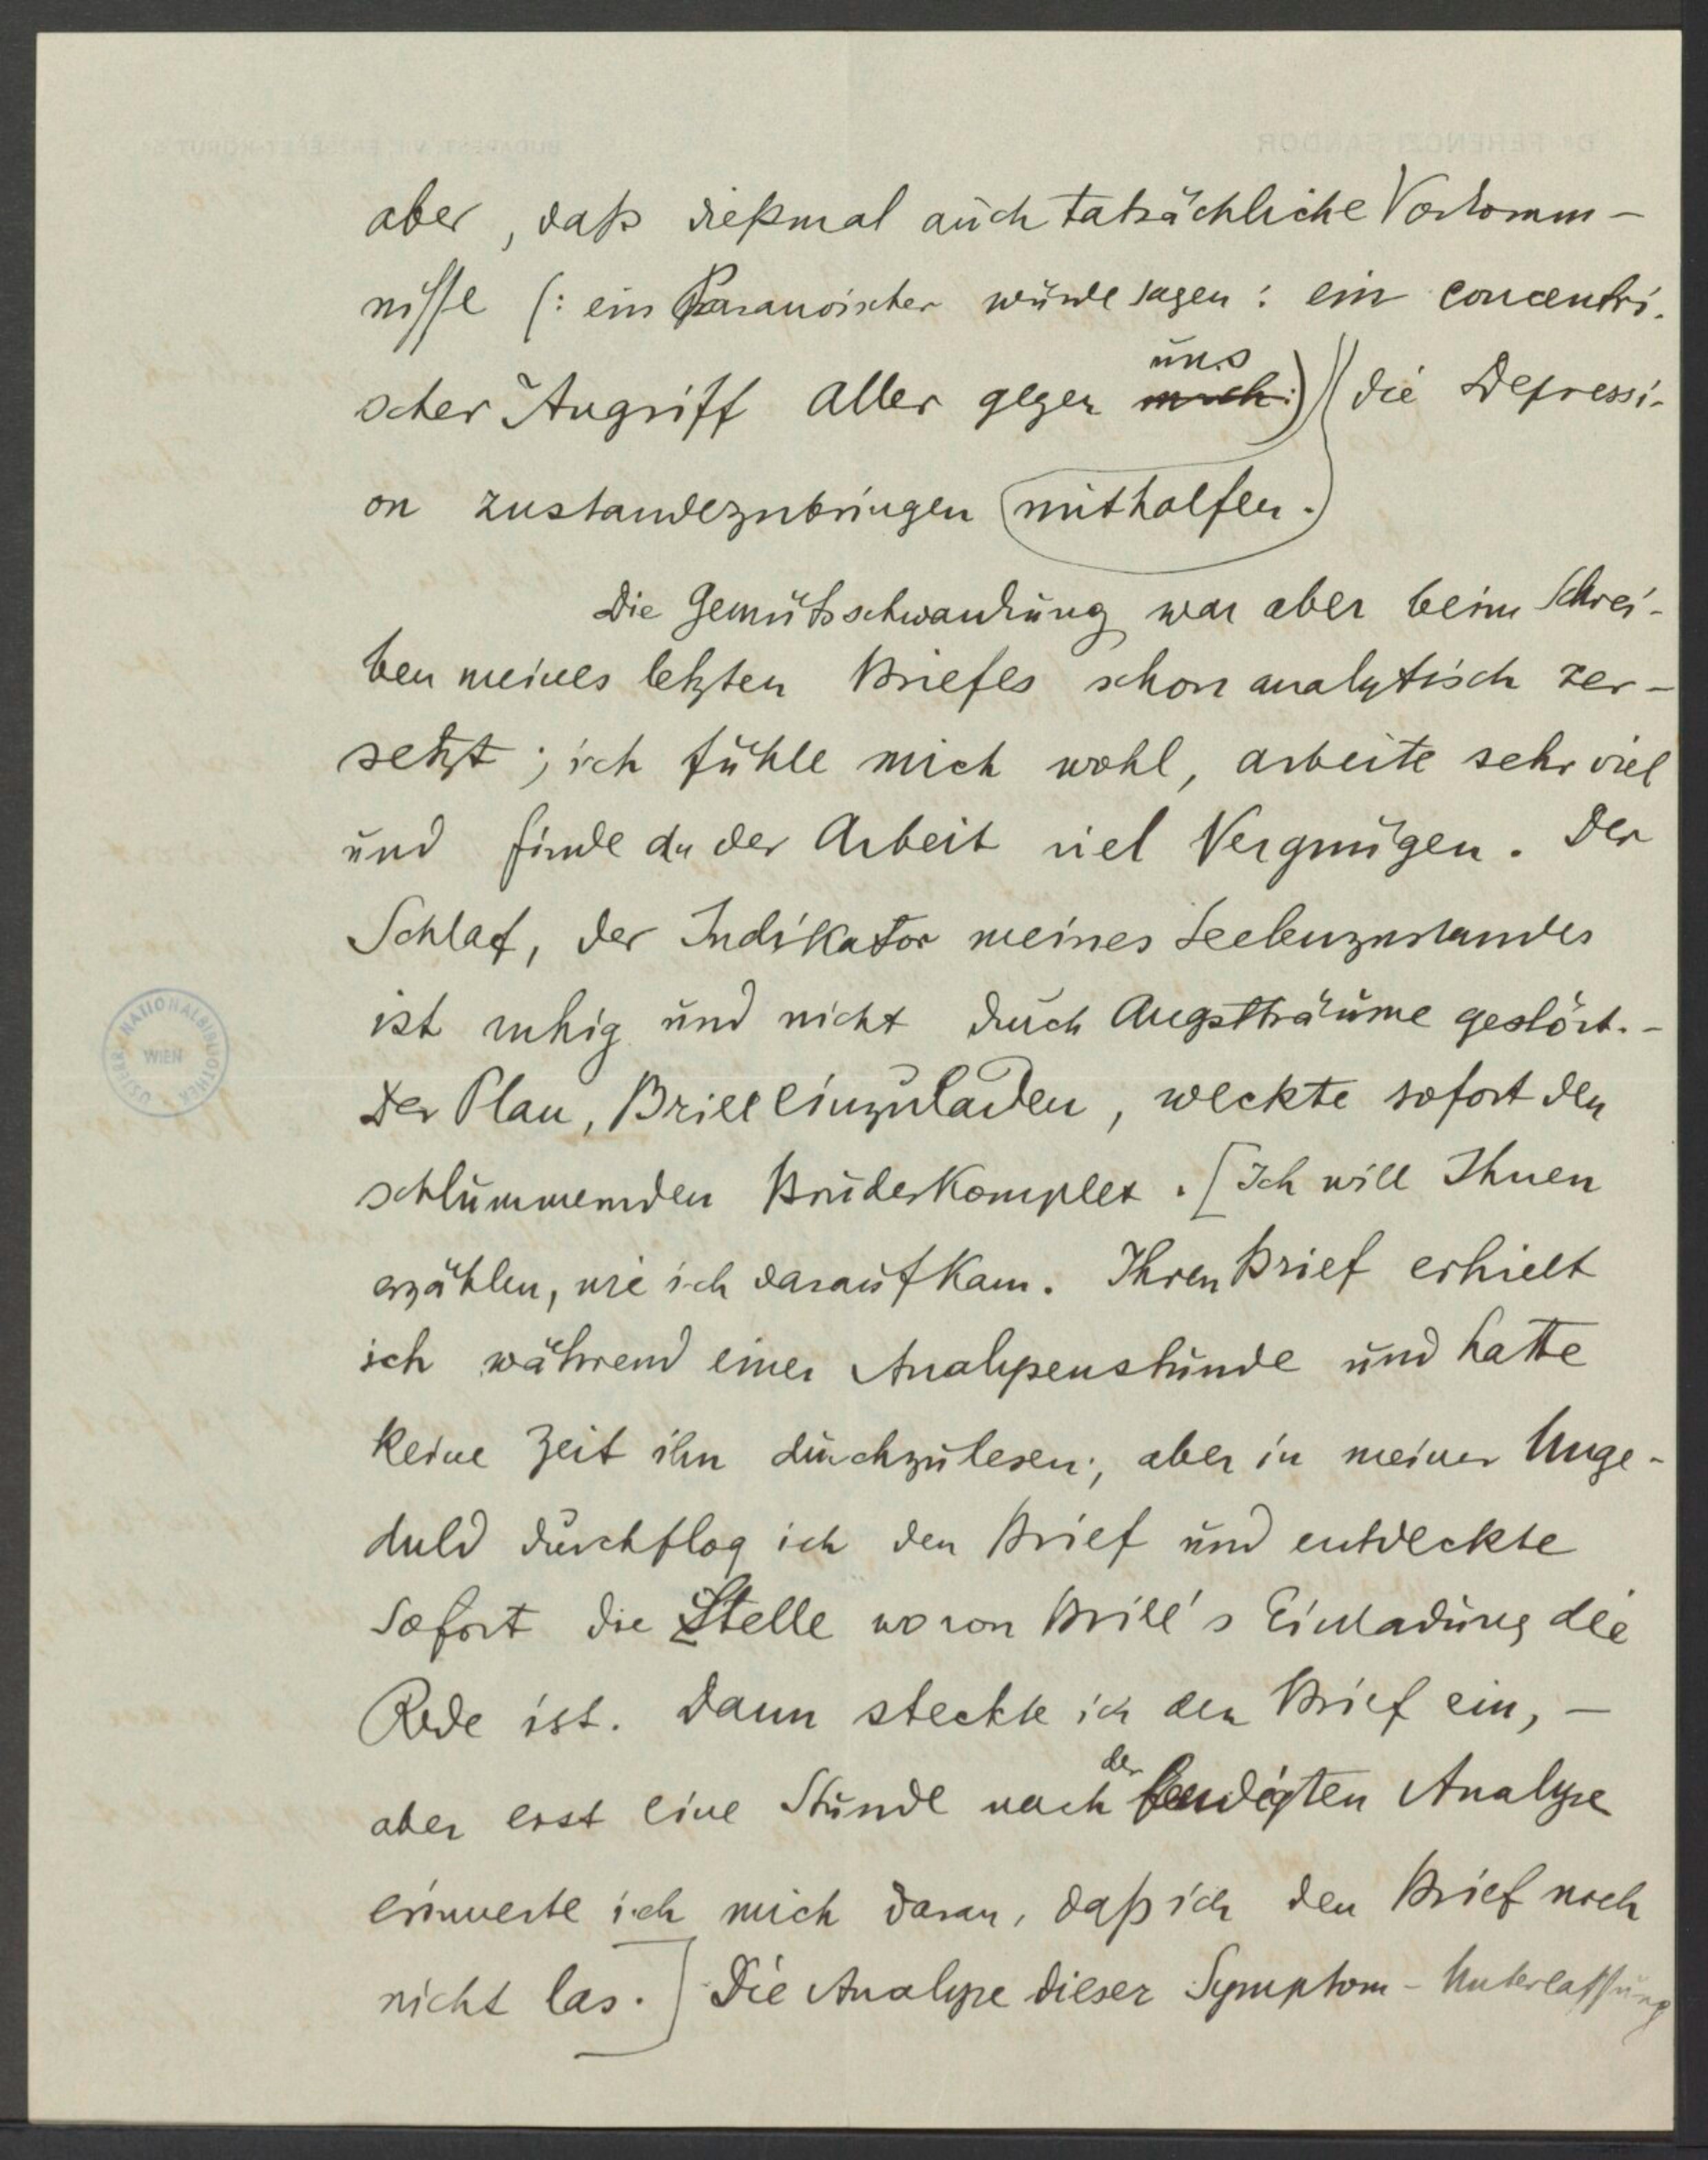 aber, daß dießmal auch tatsächliche Vorkomm-
nisse (: ein Paranoischer würde sagen: ein concentri-
scher Angriff Aller gegen uns mich :) die Depressi-
on zustandezubringen mithalfen.
Die Gemütsschwankung war aber beim Schrei-
ben meines letzten Briefes schon analytisch zer-
setzt; ich fühle mich wohl, arbeite sehr viel
und finde an der Arbeit viel Vergnügen. Der
Schlaf, der Indikator meines Seelenzustandes
ist ruhig und nicht durch Angstträume gestört. -
Der Plan, Brill einzuladen, weckte sofort den
schlummernden Bruderkomplex. [Ich will Ihnen
erzählen, wie ich darauf kam. Ihren Brief erhielt
ich während einer Analysenstunde und hatte
keine Zeit ihn durchzulesen; aber in meiner Unge-
duld durchflog ich den Brief und entdeckte
sofort die Stelle wo von Brill's Einladung die
Rede ist. Dann steckte ich den Brief ein, —
aber erst eine Stunde nach der beendigten Analyse
erinnerte ich mich daran, daß ich den Brief noch
nicht las.] Die Analyse dieser Symptom-Unterlassung
ÖSTERR. NATIONALBIBLIOTHEK
WIEN
Dr. FERENCZI SÁNDOR